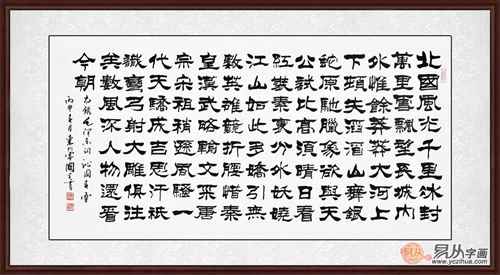 北國風光千里冰封
萬里雪飄望長城内
外惟餘莽莽大河上
下頓失滔滔山舞銀
蛇原馳臘象欲與天
公試比高須晴日看
紅裝素裹分外妖嬈
江山如此多嬌引無
數英雄競折腰惜秦
皇漢武略輸文采唐
宗宋祖稍遜風騷一
代天驕成吉思汗祇
識彎弓射大雕俱往
矣數風流人物還看
今朝
毛澤東詞沁園春雪
丙申年月
易从字画
www.yczihua.com